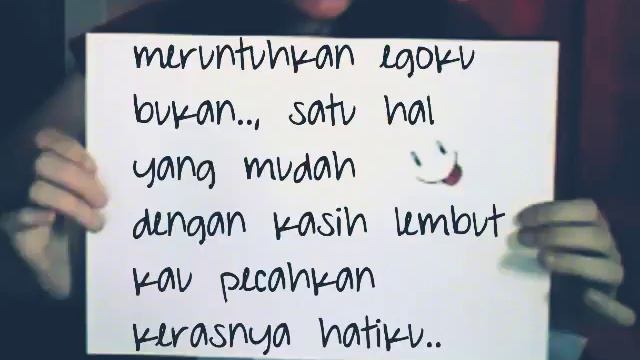 meruntuhkan egoku
bukan.., satu hal
yang mudah
dengan kasih lembut
kau pecahkan
kerasnya hatiku..